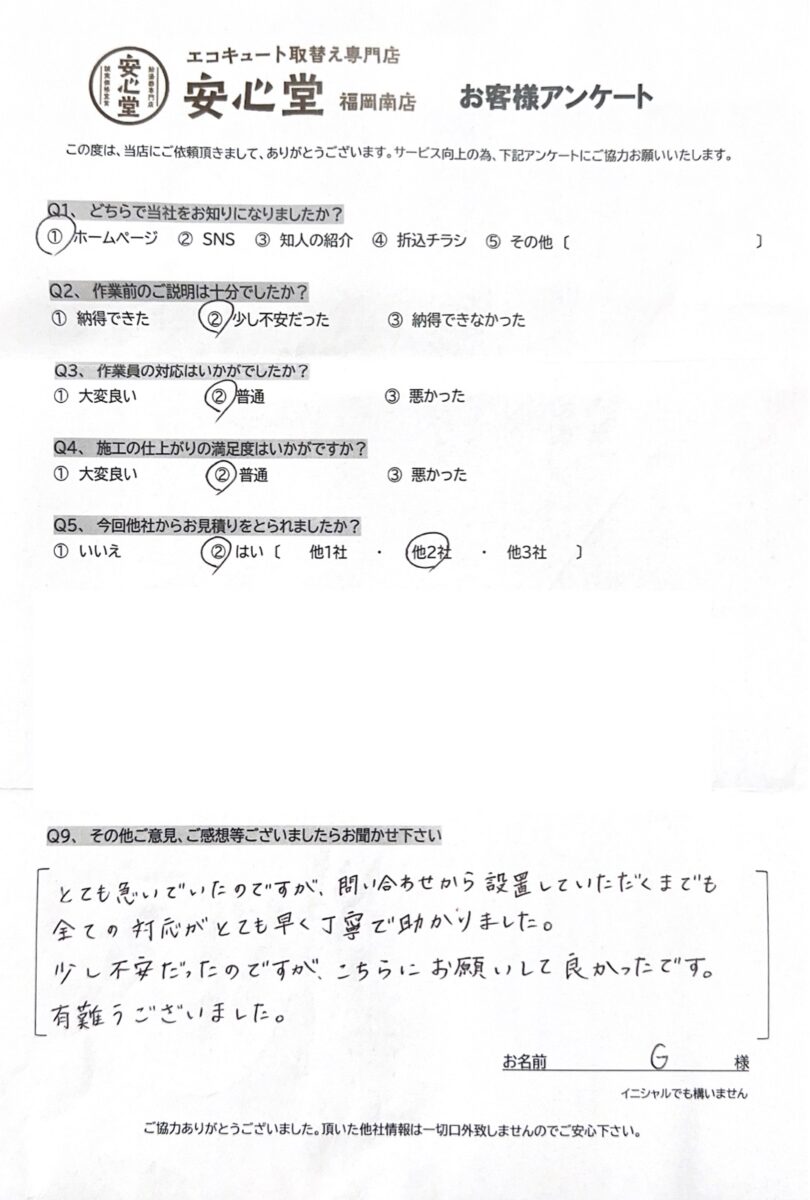 給湯器専門店
安心堂
誠実価格宣言
エコキュート取替え専門店
安心堂 福岡南店 お客様アンケート
この度は、当店にご依頼頂きまして、ありがとうございます。サービス向上の為、下記アンケートにご協力お願いいたします。
Q1、 どちらで当社をお知りになりましたか？
① ホームページ ② SNS ③ 知人の紹介 ④ 折込チラシ ⑤ その他〔 〕
Q2、 作業前のご説明は十分でしたか？
① 納得できた ② 少し不安だった ③ 納得できなかった
Q3、 作業員の対応はいかがでしたか？
① 大変良い ② 普通 ③ 悪かった
Q4、 施工の仕上がりの満足度はいかがですか？
① 大変良い ② 普通 ③ 悪かった
Q5、 今回他社からお見積りをとられましたか？
① いいえ ② はい〔 他1社 ・ 他2社 ・ 他3社 〕
Q9、 その他ご意見、ご感想等ございましたらお聞かせ下さい
とても急いでいたのですが、問い合わせから設置していただくまでも
全ての対応がとても早く丁寧で助かりました。
少し不安だったのですが、こちらにお願いして良かったです。
有難うございました。
お名前 G 様
イニシャルでも構いません
ご協力ありがとうございました。頂いた他社情報は一切口外致しませんのでご安心下さい。